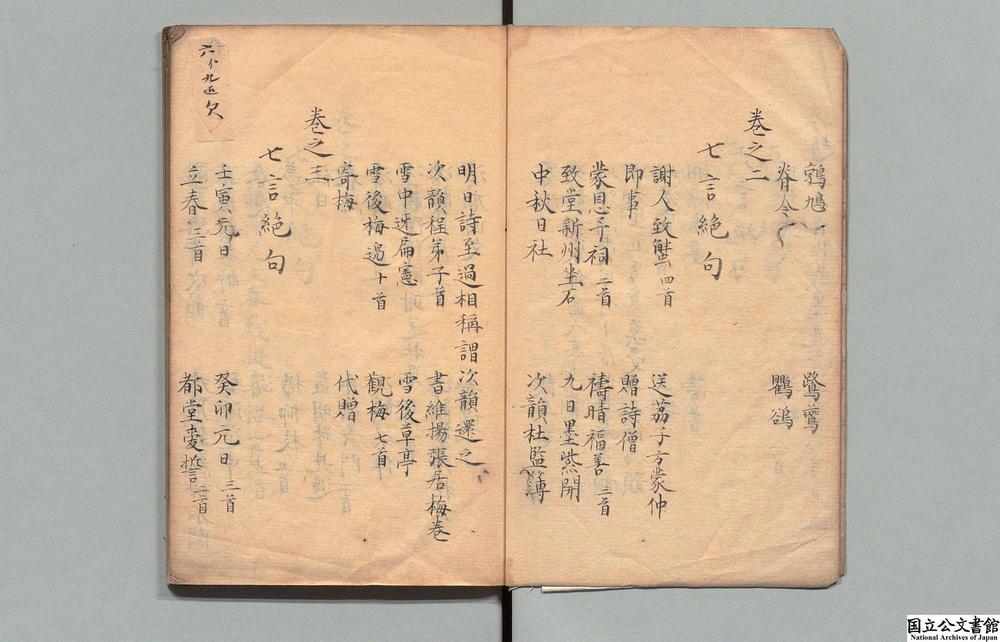 鵓鳩 鷺鷥
脊令 鸜鵒
卷之二
七言絕句
謝人致蟹四首 送荔子方蒙仲
即事 贈詩僧
蒙恩予祠二首 禱晴福善三首
致堂新州坐石 九日墨紫開
中秋日社 次韻杜監簿
明日詩至過相稱謂次韻還之
次韻程弟子首 書維揚張居梅卷
雪中迓扁憲 雪後草亭
雪後梅邊十首 觀梅七首
寄梅 代贈
卷之三
七言絕句
壬寅元日 癸卯元日三首
立春三首 都堂受誓二首
六 九 欠
国立公文書館
National Archives of Japan